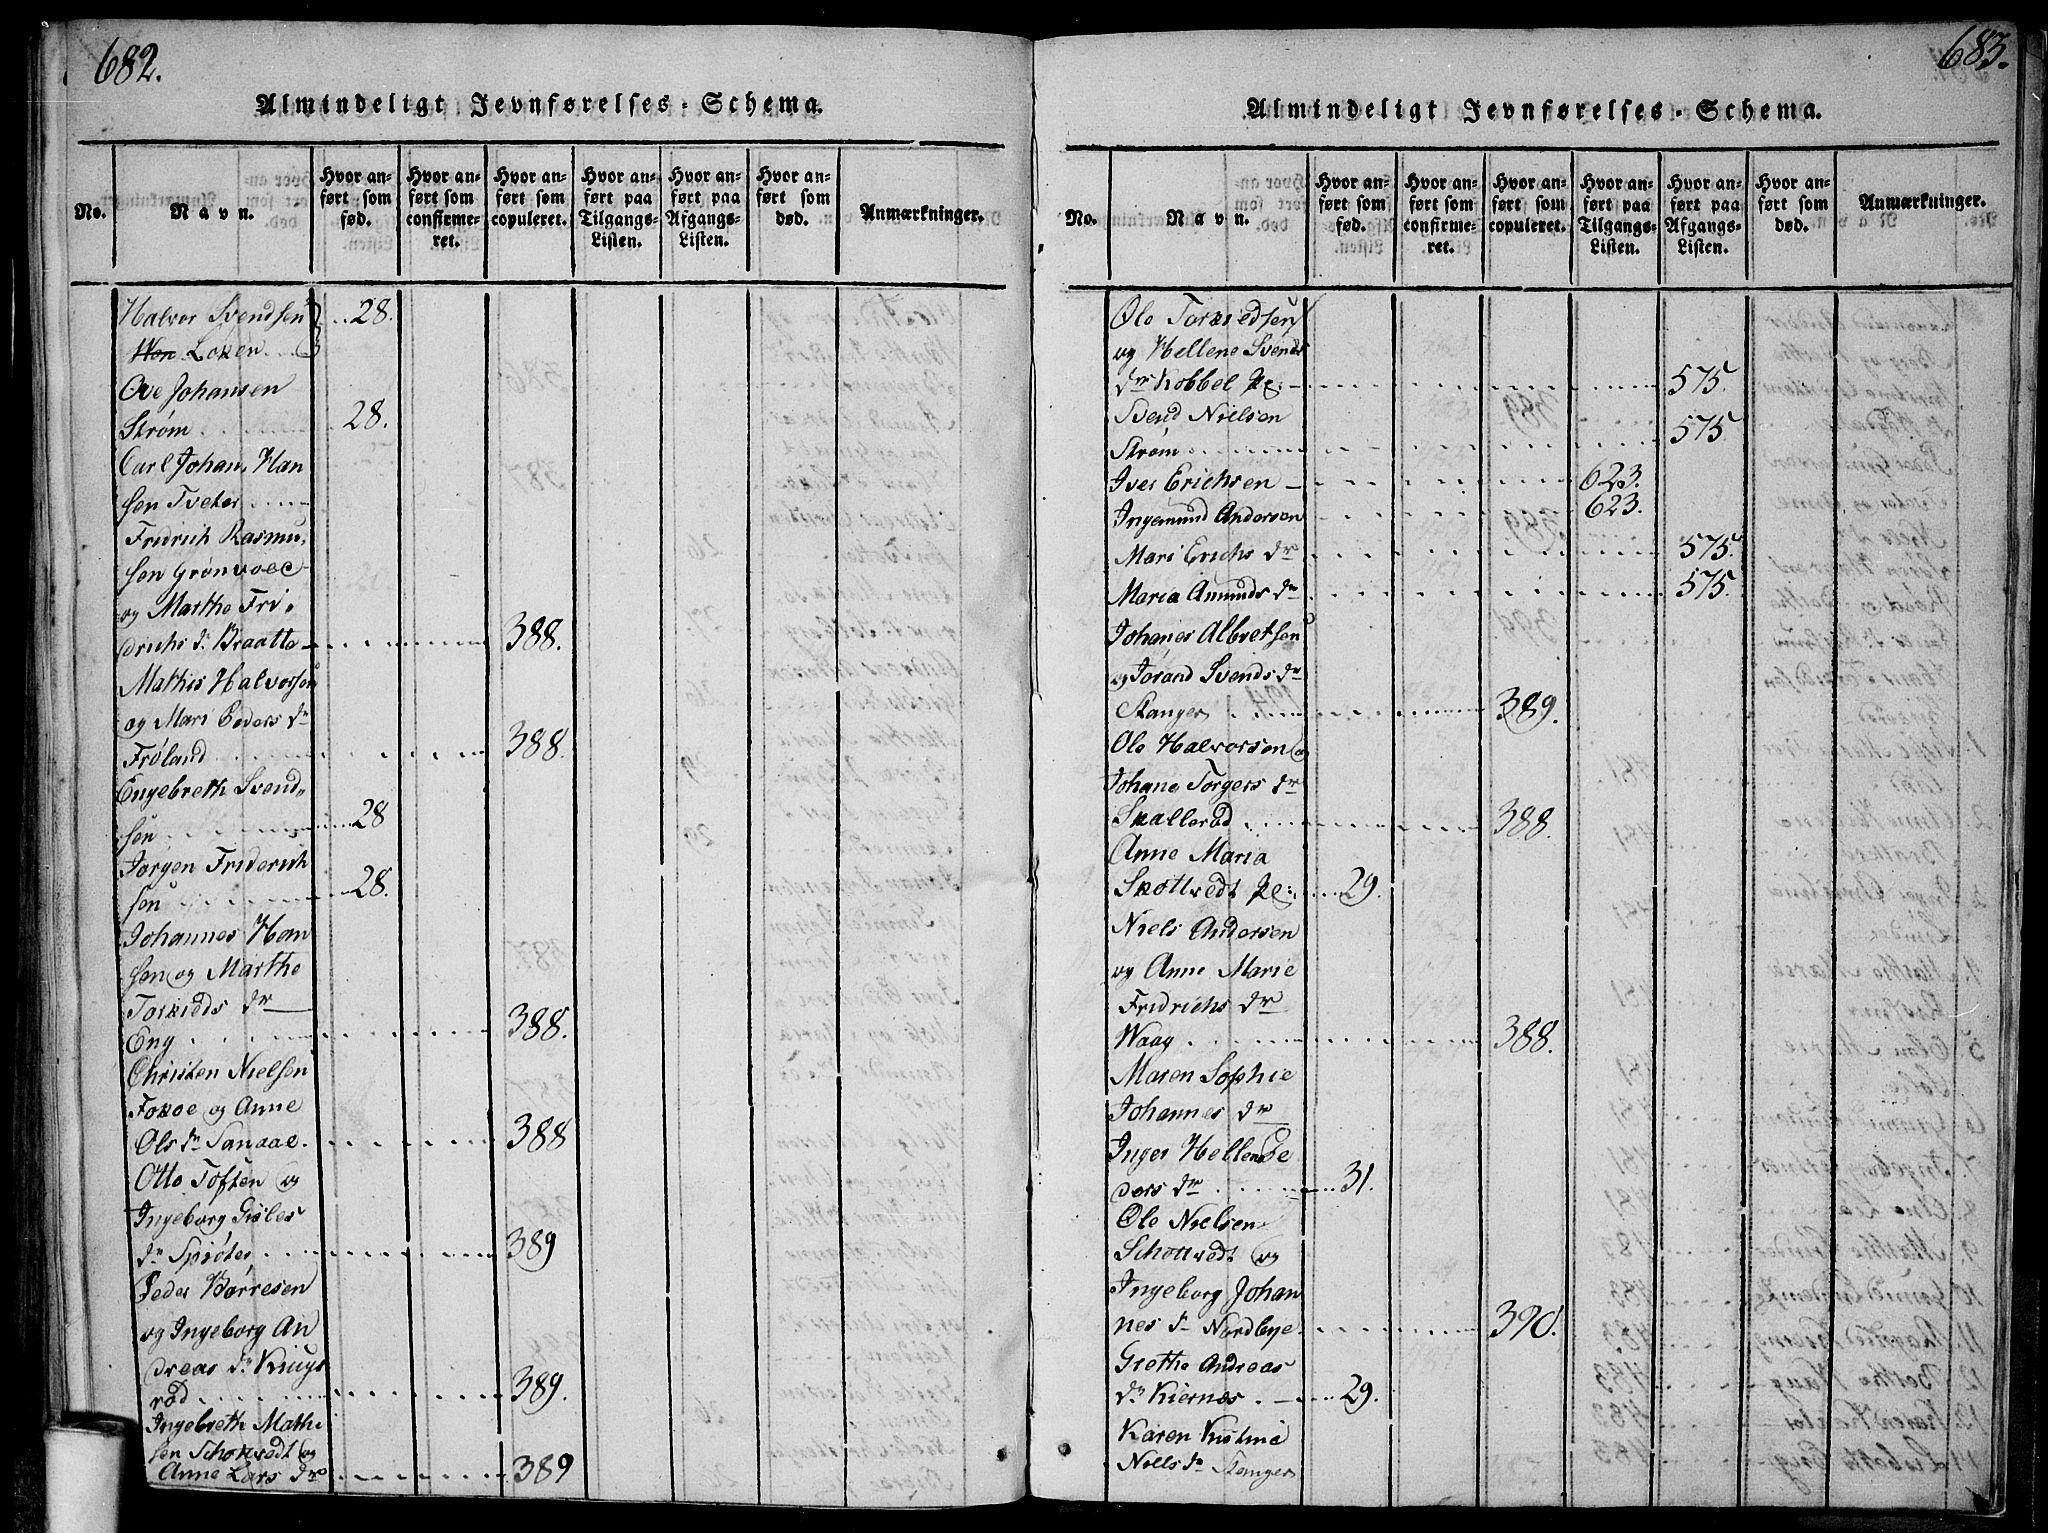 682.
Almindeligt Jevnførelses-Schema.
No.
Navn.
Hvor an-
ført som
fød.
Hvor an-
ført som
confirme-
ret.
Hvor an-
ført som
copuleret.
Hvor an-
ført paa
Tilgangs-
Listen.
Hvor an-
ført paa
Afgangs-
Listen.
Hvor an-
ført som
død.
Anmærkninger.
Halvor Svendsen 28.
Loken
Ove Johansen
Strøm 28.
Carl Johan Han
sen Tveter
Fridrich Rasmu,
sen Grønvoll
og Marthe Fri,
drichs dr Braatte 388.
Mathis Halvorsen
og Mari Peders dr
Frøland 388.
Engebreth Svend,
sen 28
Jørgen Friderich
sen 28.
Johannes Han
sen og Marthe
Torkilds dr
Eng 388.
Christen Nielsen
og Anne
Ols dr 388
Otto Toften og
Ingeborg Gisles
dr Sprøter 389
Peder Børresen
og Ingeborg An
dreas dr Krugs
rød 389.
Ingebreth Mathi
sen Schottvedt og
Anne Lars dr 389
683.
Almindeligt Jevnførelses-Schema.
No.
Navn.
Hvor an-
ført som
fød.
Hvor an-
ført som
confirme-
ret.
Hvor an-
ført som
copuleret.
Hvor an-
ført paa
Tilgangs-
Listen.
Hvor an-
ført paa
Afgangs-
Listen.
Hvor an-
ført som
død.
Anmærkninger.
Ole Torkildsen
og Hellene Svends
dr Kobbel 575.
Svend Nielsen
Strøm 575
Iver Erichsen 623.
Ingemund Andersen 623.
Mari Erichs dr 575.
Maria Amunds dr 575.
Johanes Albretsen
og Jorand Svends dr
Stanger 389.
Ole Halvorsen og
Johane Torgers dr
Skallerød 388.
Anne Maria
Skottvedt 29.
Niels Andersen
og Anne Marie
Fridrichs dr
Waag 388.
Maren Sophie
Johannes dr
Inger Hellene Pe
ders dr 31.
Ole Nielsen
Schottvedt og
Ingeborg Johan
nes dr Nordbye 390.
Grethe Andreas
dr Kiernæs 29.
Karen Kistine
Niels dr Stanger